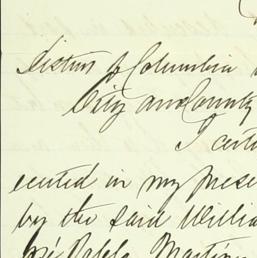 District of Columbia
City and County
I certi
ecuted in my prese
by the said Willia